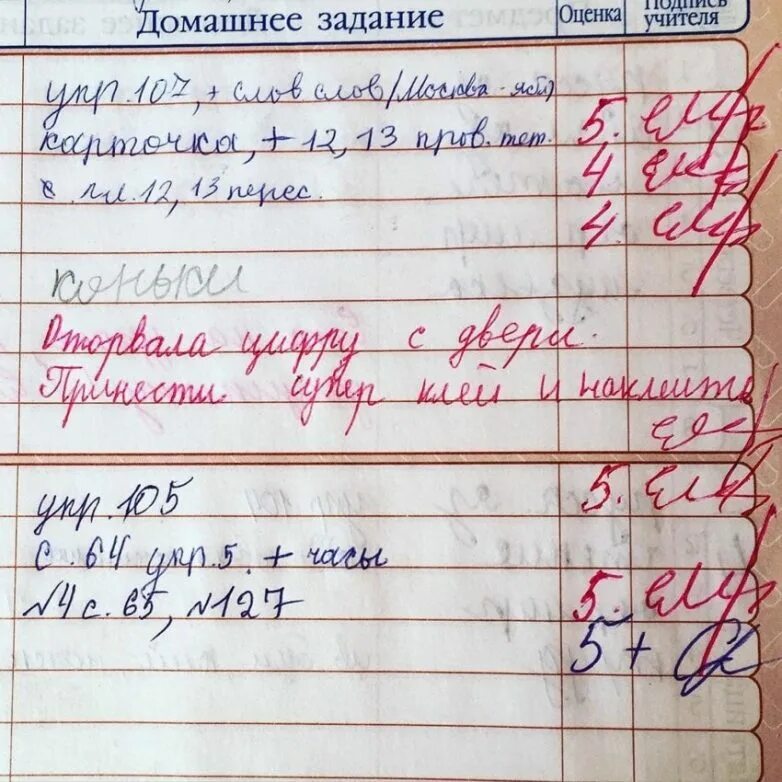 Домашнее задание Оценка Подпись учителя
упр. 107, + слов слов (Москва - яст) 5.
карточка, + 12, 13 пров. тет. 4
с. 12, 13 перес. 4.
коньки
Оторвала цифру с двери.
Принести супер клей и наклеить
упр. 105 5.
с. 64 упр. 5. + часы
№4 с. 65, №127 5.
5+